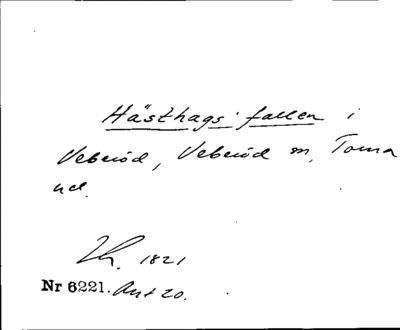 Hästhags fallen i
Veberöd, Veberöd sn, Torna
hd.
1821
Nr 6221. Akt 20.